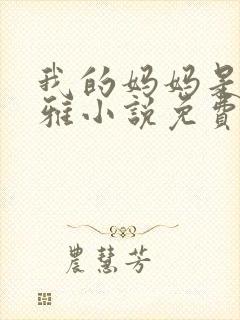 我的妈妈是
雅小說免費
農慧芳